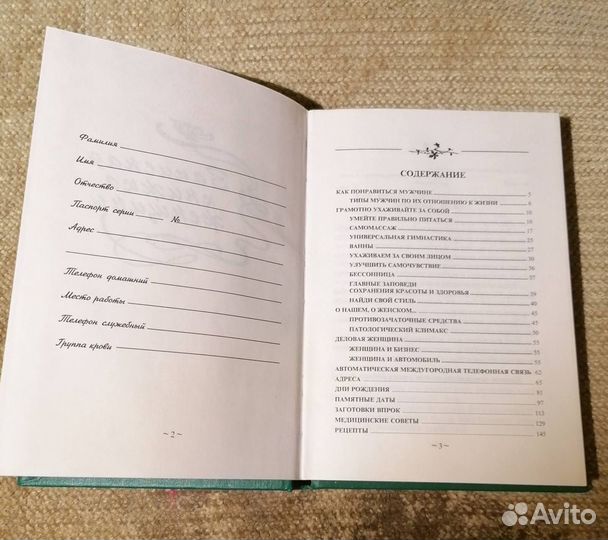 Фамилия
Имя
Отчество
Паспорт серии № 
Адрес
Телефон домашний
Место работы
Телефон служебный
Группа крови
~ 2 ~
СОДЕРЖАНИЕ
КАК ПОНРАВИТЬСЯ МУЖЧИНЕ 5
ТИПЫ МУЖЧИН ПО ИХ ОТНОШЕНИЮ К ЖИЗНИ 6
ГРАМОТНО УХАЖИВАЙТЕ ЗА СОБОЙ 10
УМЕЙТЕ ПРАВИЛЬНО ПИТАТЬСЯ 10
САМОМАССАЖ 17
УНИВЕРСАЛЬНАЯ ГИМНАСТИКА 25
ВАННЫ 27
УХАЖИВАЕМ ЗА СВОИМ ЛИЦОМ 30
УЛУЧШИТЬ САМОЧУВСТВИЕ 36
БЕССОННИЦА 37
ГЛАВНЫЕ ЗАПОВЕДИ
СОХРАНЕНИЯ КРАСОТЫ И ЗДОРОВЬЯ 39
НАЙДИ СВОЙ СТИЛЬ 40
О НАШЕМ, О ЖЕНСКОМ... 45
ПРОТИВОЗАЧАТОЧНЫЕ СРЕДСТВА 45
ПАТОЛОГИЧЕСКИЙ КЛИМАКС 50
ДЕЛОВАЯ ЖЕНЩИНА 55
ЖЕНЩИНА И БИЗНЕС 55
ЖЕНЩИНА И АВТОМОБИЛЬ 55
АВТОМАТИЧЕСКАЯ МЕЖДУГОРОДНАЯ ТЕЛЕФОННАЯ СВЯЗЬ 62
АДРЕСА 65
ДНИ РОЖДЕНИЯ 81
ПАМЯТНЫЕ ДАТЫ 97
ЗАГОТОВКИ ВПРОК 113
МЕДИЦИНСКИЕ СОВЕТЫ 129
РЕЦЕПТЫ 145
~ 3 ~
Avito